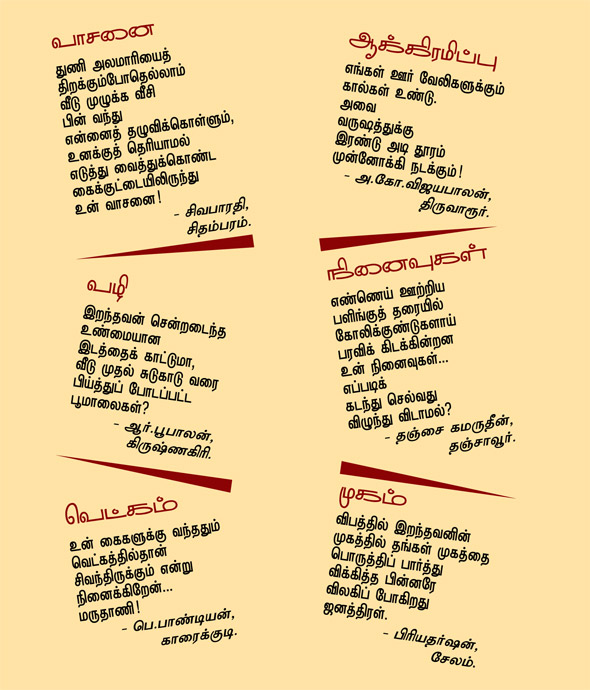 வாசனை
துணி அலமாரியைத்
திறக்கும்போதெல்லாம்
வீடு முழுக்க வீசி
பின் வந்து
என்னைத் தழுவிக்கொள்ளும்,
உனக்குத் தெரியாமல்
எடுத்து வைத்துக்கொண்ட
கைக்குட்டையிலிருந்து
உன் வாசனை!
- சிவபாரதி,
சிதம்பரம்.
ஆக்கிரமிப்பு
எங்கள் ஊர் வேலிகளுக்கும்
கால்கள் உண்டு.
அவை
வருஷத்துக்கு
இரண்டு அடி தூரம்
முன்னோக்கி நடக்கும்!
- அ.கோ.விஜயபாலன்,
திருவாரூர்.
வழி
இறந்தவன் சென்றடைந்த
உண்மையான
இடத்தைக் காட்டுமா,
வீடு முதல் சுடுகாடு வரை
பிய்த்துப் போடப்பட்ட
பூமாலைகள்?
- ஆர்.பூபாலன்,
கிருஷ்ணகிரி.
நினைவுகள்
எண்ணெய் ஊற்றிய
பளிங்குத் தரையில்
கோலிக்குண்டுகளாய்
பரவிக் கிடக்கின்றன
உன் நினைவுகள்...
எப்படிக்
கடந்து செல்வது
விழுந்து விடாமல்?
- தஞ்சை கமருதீன்,
தஞ்சாவூர்.
வெட்கம்
உன் கைகளுக்கு வந்ததும்
வெட்கத்தில்தான்
சிவந்திருக்கும் என்று
நினைக்கிறேன்...
மருதாணி!
- பெ.பாண்டியன்,
காரைக்குடி.
முகம்
விபத்தில் இறந்தவனின்
முகத்தில் தங்கள் முகத்தை
பொருத்திப் பார்த்து
விக்கித்த பின்னரே
விலகிப் போகிறது
ஜனத்திரள்.
- பிரியதர்ஷன்,
சேலம்.